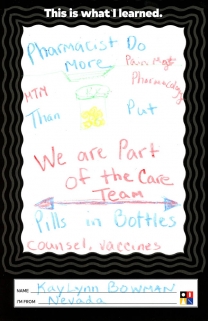 This is what I learned.
Pharmacist Do
More
Pain Mgt
Pharmacology
MTM
Than Put
We are Part
of the Care
Team
Pills in Bottles
counsel, vaccines
NAME KayLynn BOWMAN
I'M FROM Nevada